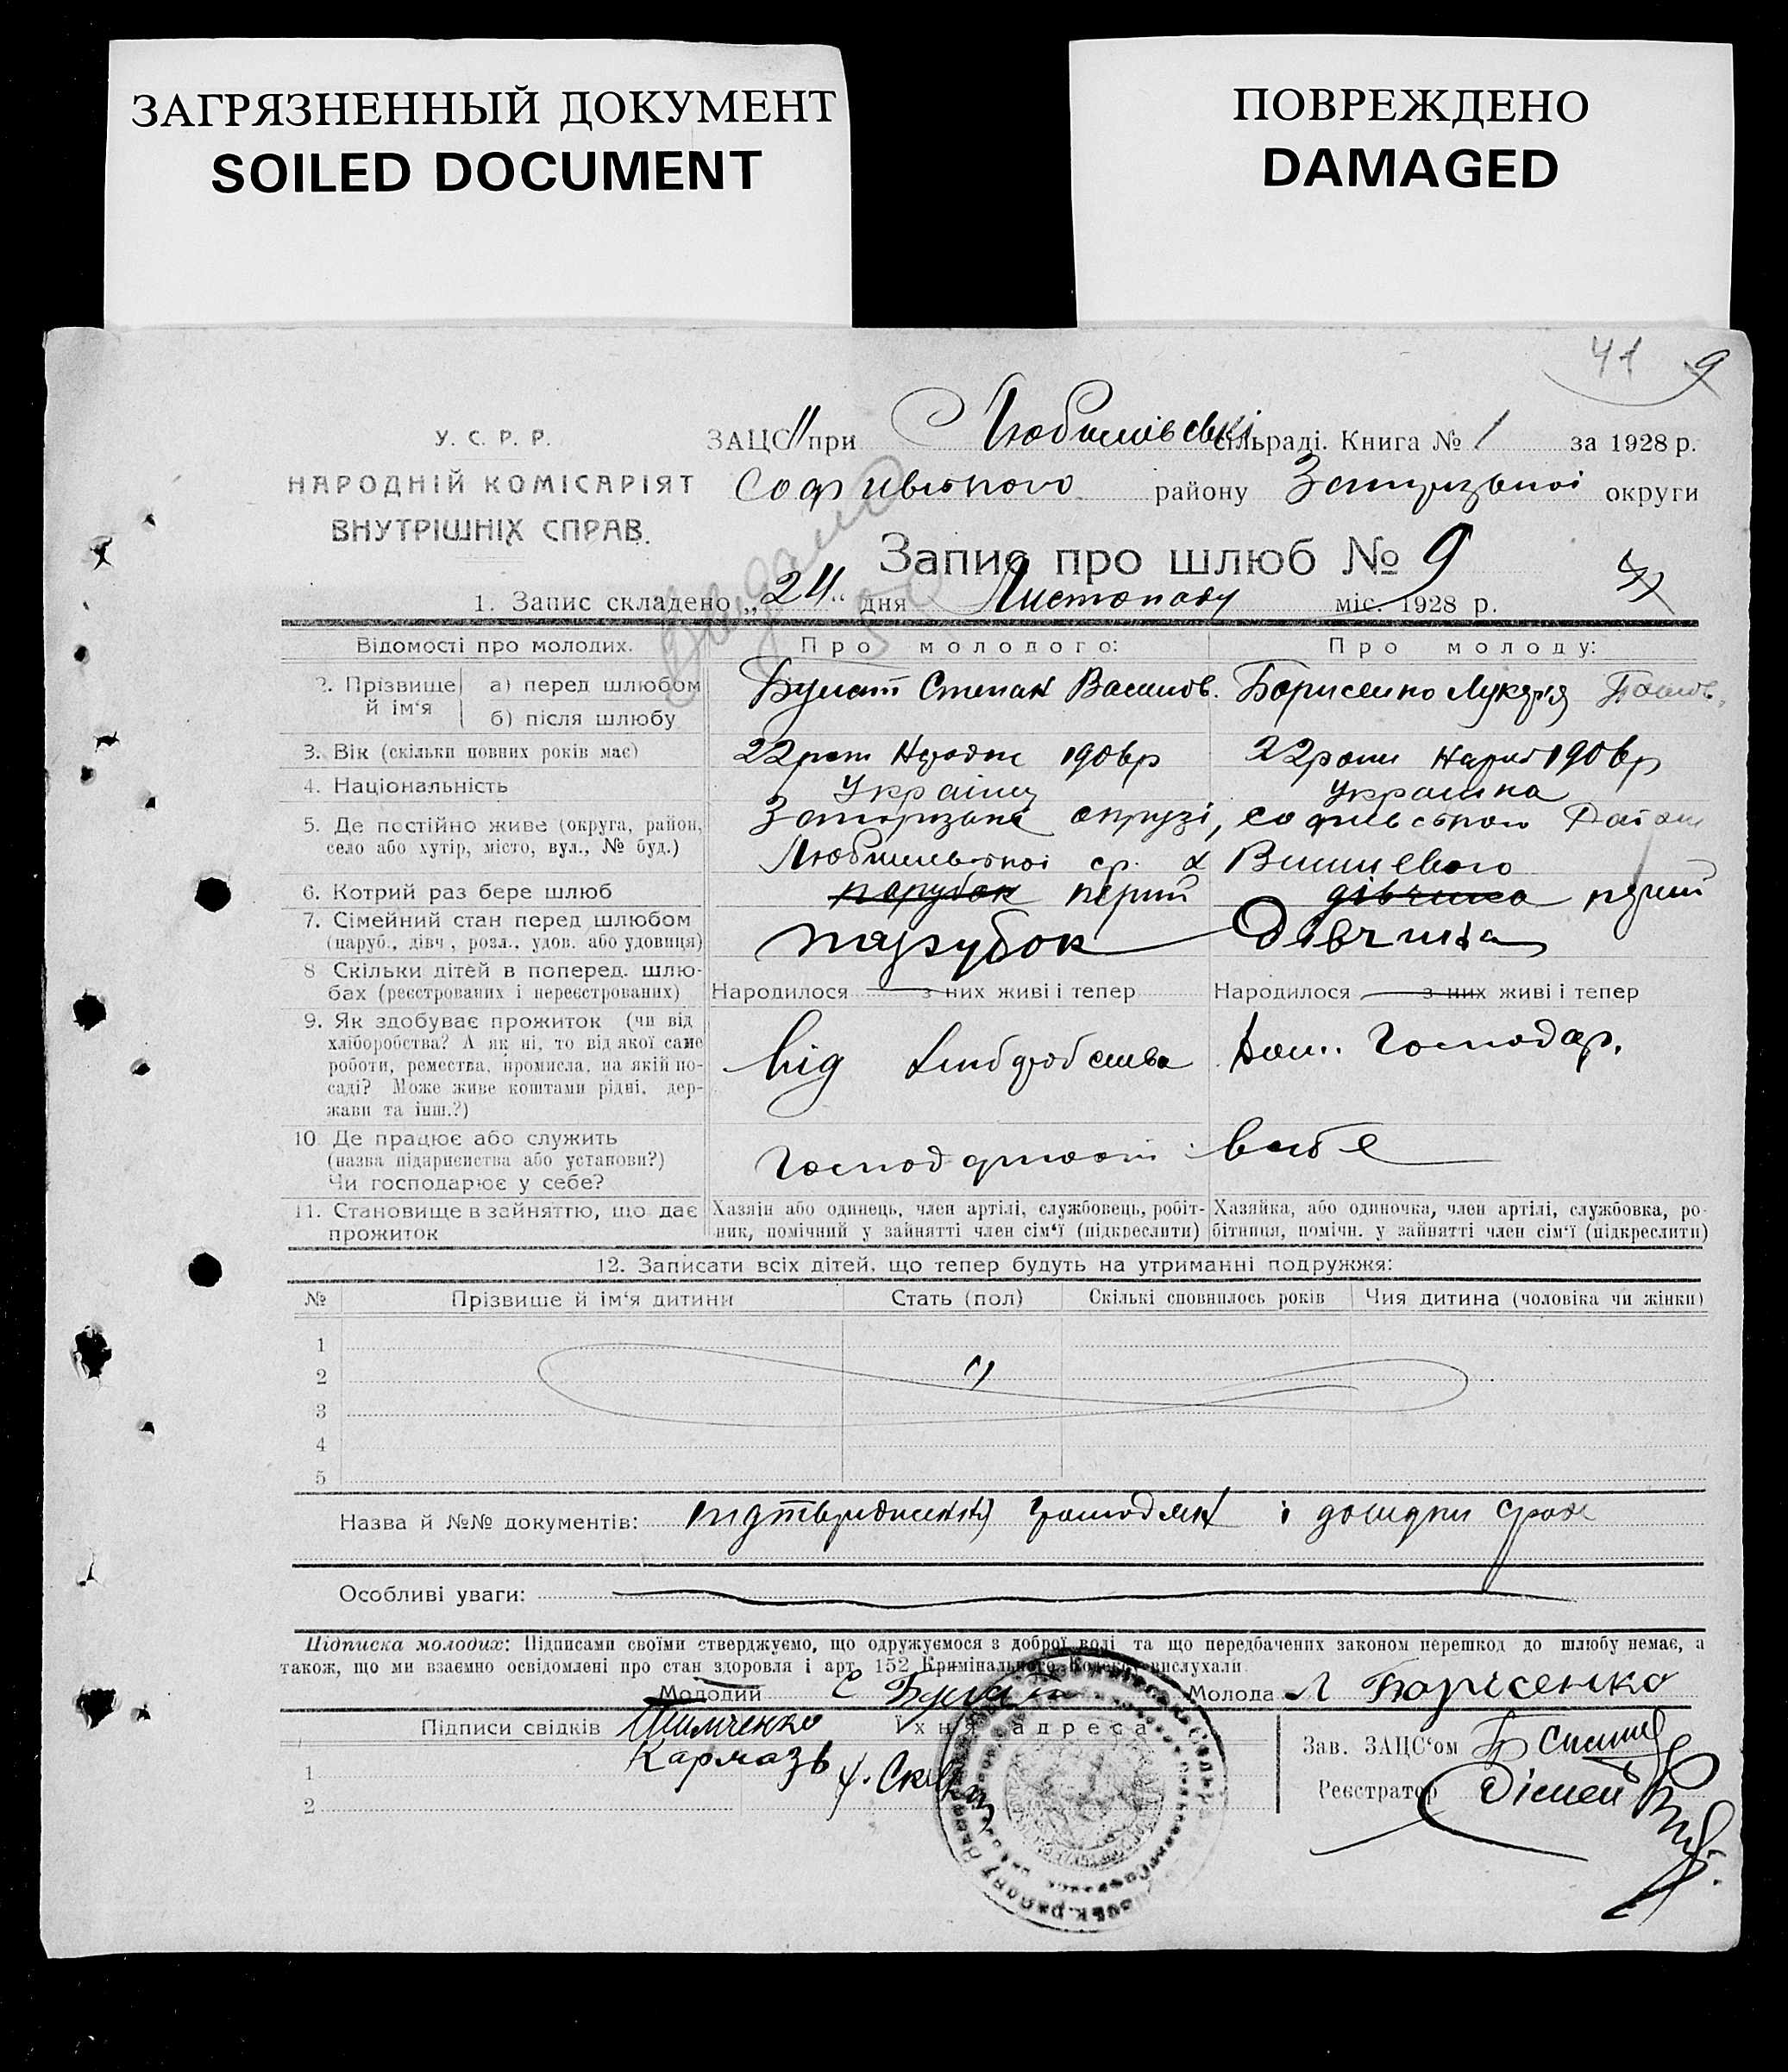 ЗАГРЯЗНЕННЫЙ ДОКУМЕНТ
SOILED DOCUMENT
ПОВРЕЖДЕНО
DAMAGED
41 9
У. С. Р. Р.
НАРОДНІЙ КОМІСАРІЯТ
ВНУТРІШНІХ СПРАВ.
ЗАЦС при Любимівські сільраді. Книга № 1 за 1928 р.
Софивського району Запорізької округи
Запис про шлюб № 9
1. Запис складено „24“ дня Листопаду міс. 1928 р.
Відомості про молодих.
Про молодого:
Про молоду:
2. Прізвище й ім'я
а) перед шлюбом
б) після шлюбу
Булат Степан Василов.
Борисенко Лукерія
3. Вік (скільки повних років має)
22 рот Народж 1906р
22 роки Народ 1906р
4. Національність
Українц
Украинка
5. Де постійно живе (округа, район, село або хутір, місто, вул., № буд.)
Запорізька округі, софиевського Район
Любимівської ср. х Вишневого
6. Котрий раз бере шлюб
парубок перший
дівчина перший
7. Сімейний стан перед шлюбом
(паруб., дівч., розл., удов. або удовиця)
парубок
Дівчина
8 Скільки дітей в поперед. шлюбах (реєстрованих і нереєстрованих)
Народилося з них живі і тепер
Народилося з них живі і тепер
9. Як здобуває прожиток (чи від
хліборобства? А як ні, то від якої саме
роботи, ремества, промисла, на якій по-
саді? Може живе коштами рідні, дер-
жави та інш.?)
від Хлиборобства
Дом. Господар.
10. Де працює або служить
(назва підприємства або установи?)
Чи господарює у себе?
Господарюють в себе
11. Становище в зайняттю, що дає
прожиток
Хазяїн або одинець, член артілі, службовець, робіт-
ник, помічний у зайнятті член сім'ї (підкреслити)
Хазяйка, або одиночка, член артілі, службовка, ро-
бітниця, помічн. у зайнятті член сім'ї (підкреслити)
12. Записати всіх дітей, що тепер будуть на утриманні подружжя:
№ Прізвище й ім'я дитини Стать (пол) Скількі сповнилось років Чия дитина (чоловіка чи жінки)
1
2
3
4
5
Назва й №№ документів: підтвердження громодян і довідки срад
Особливі уваги:
Підписка молодих: Підписами своїми стверджуємо, що одружуємося з доброї волі та що передбачених законом перешкод до шлюбу немає, а
також, що ми взаємно освідомлені про стан здоровля і арт. 152 Кримінального Кодексу вислухали
Молодий С Булат Молода Л Борисенко
Підписи свідків Їхня адреса
Тимченко
Кармазь
1
2
Зав. ЗАЦС'ом
Реєстратор